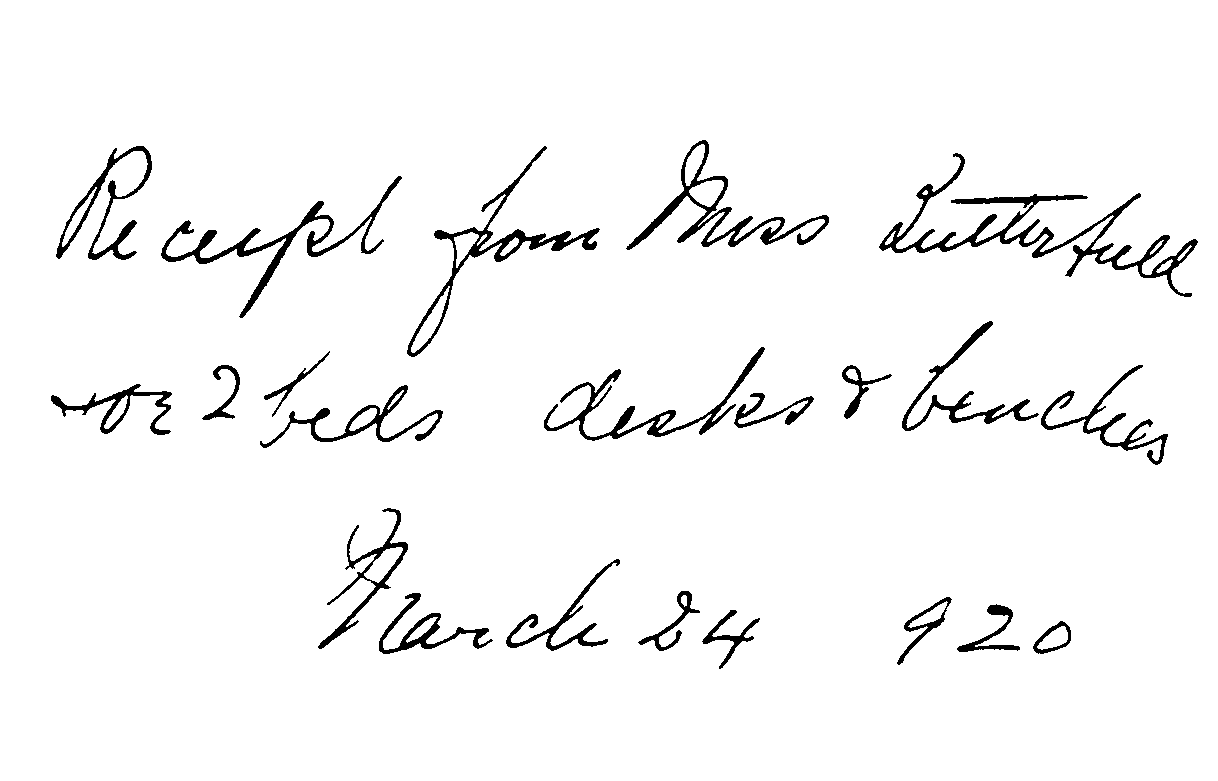 Receipt from Miss Butterfield
for 2 beds desks & benches
March 24 920